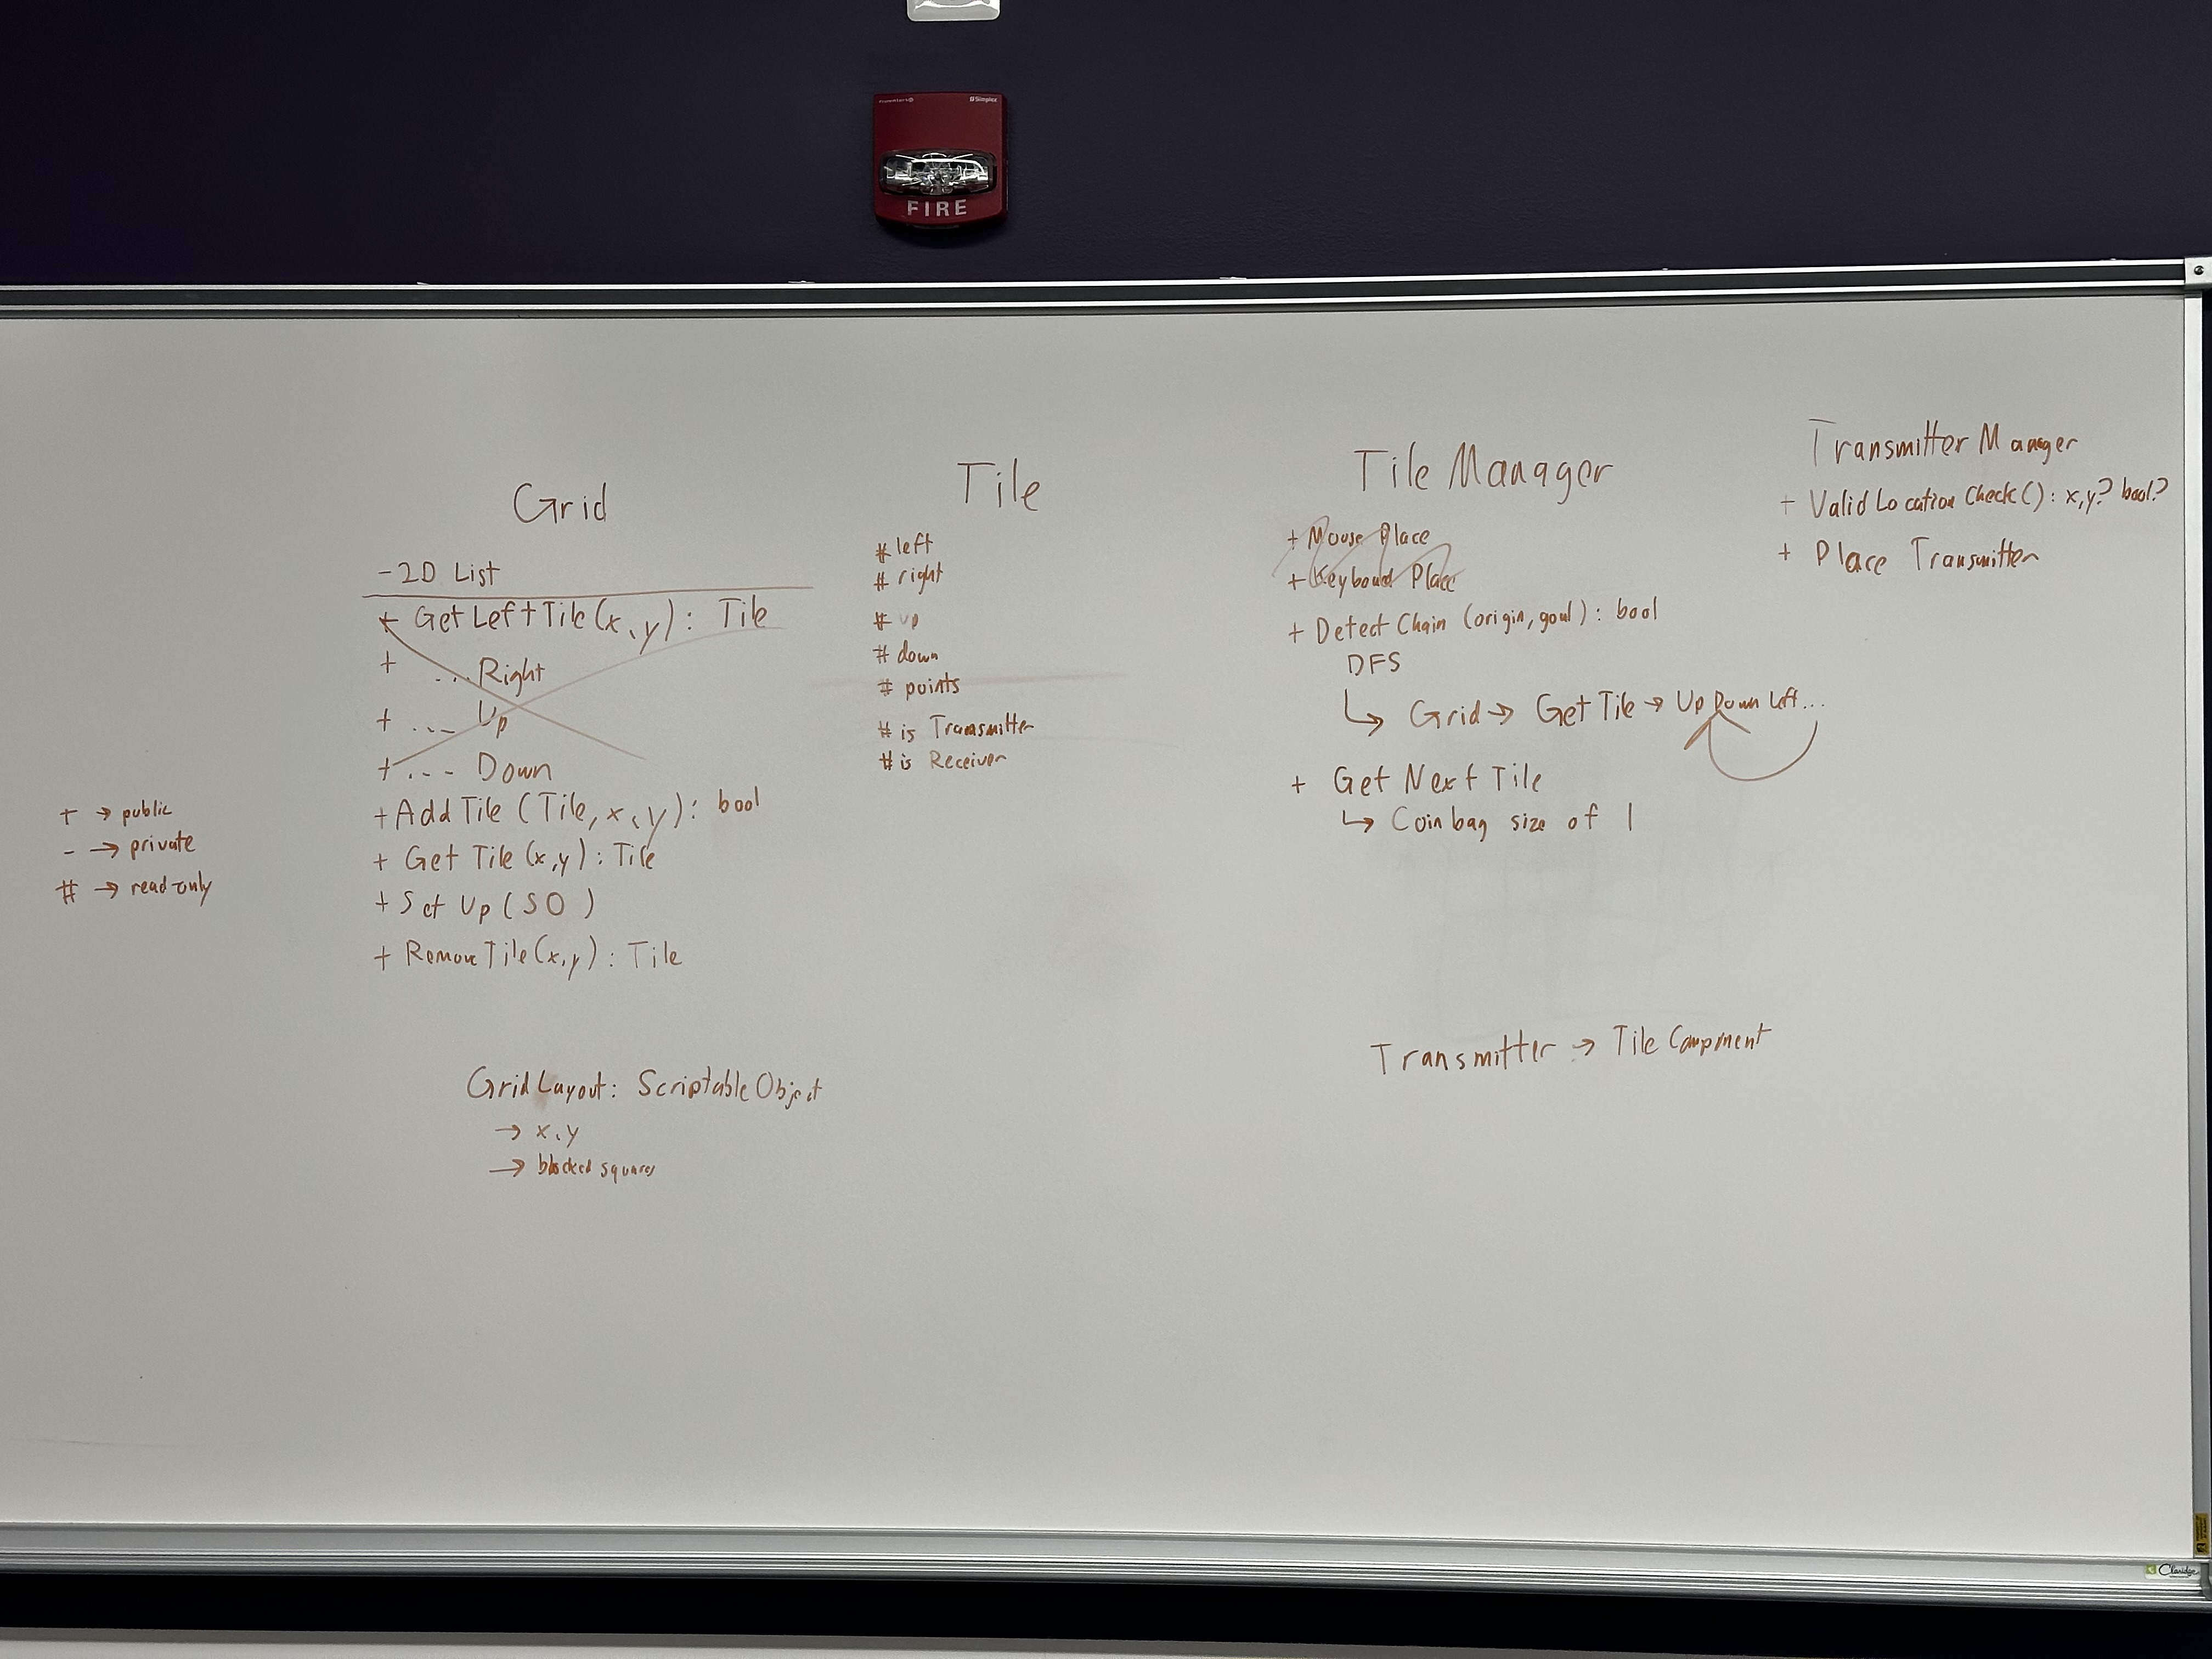 Simplex
FIRE
Grid
- 2D List
+ GetLeftTile(x,y): Tile
+ ... Right
+ ... Up
+ ... Down
+ AddTile (Tile, x, y): bool
+ Get Tile (x,y): Tile
+ Set Up (SO)
+ RemoveTile(x,y): Tile
Grid Layout: Scriptable Object
→ x,y
→ blocked squares
+ → public
- → private
# → read only
Tile
# left
# right
# up
# down
# points
# is Transmitter
# is Receiver
Tile Manager
+ Mouse Place
+ Keyboard Place
+ Detect Chain (origin, goal): bool
DFS
↳ Grid → Get Tile → Up Down Left...
+ Get Next Tile
↳ Coin bag size of 1
Transmitter → Tile Component
Transmitter Manager
+ Valid Location Check(): x,y? bool?
+ Place Transmitter
Claridge